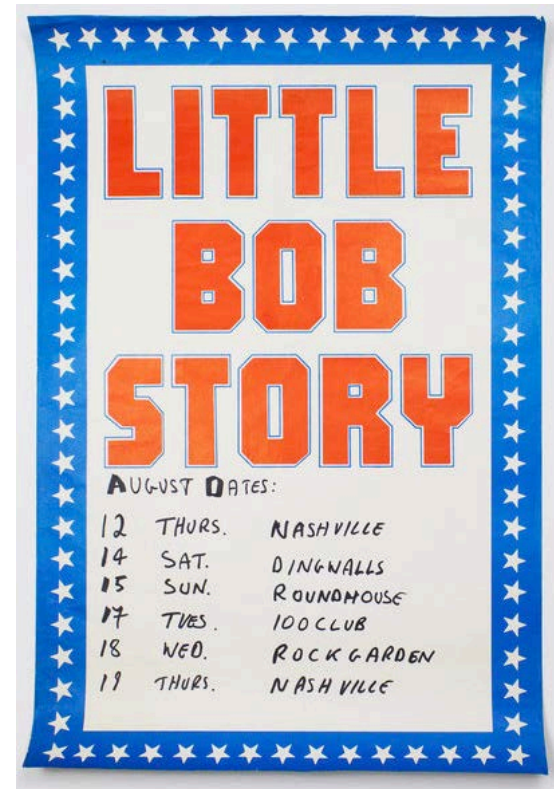 LITTLE
BOB
STORY
AUGUST DATES:
12 THURS. NASHVILLE
14 SAT. DINGWALLS
15 SUN. ROUNDHOUSE
17 TUES. 100 CLUB
18 WED. ROCK GARDEN
19 THURS. NASHVILLE